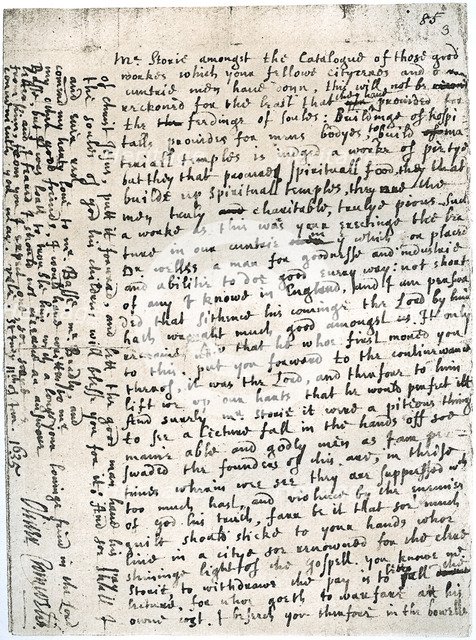 85
3
Mr Storie amongst the Catalogue of those good
workes which your fellowe citycenes and our
cuntrie men have donn, this will not be
reckoned for the least that they have provided for
the feedinge of soules: Buildinge of hospi
talls provides for mens bodyes, to build ma
teriall temples is judged a worke of pietye
but they that procure spirituall food, they that
build up spirituall temples, they are the
men truly charitable, trulye pious. Such
a worke as this was your erectinge the lec
ture in our cuntrie in the which you placed
Dr Welles a man for goodnesse and industrie
and abilitie to doe good every way: not short
of any I knowe in England, and I am perswa
ded that sithence his cominge the Lord by him
hath wrought much good amongst us. It only
remains now that he whoe first moved you
to this, put you forward to the continewance
thereof, it was the Lord, and therfore to him
lift we up our harts that he would perfect itt
And surely Mr Storie it were a piteous thing
to see a lecture fall in the hands off soe
manie able and godly men as I am per
swaded the founders of this are, in theise
times wherin wee see they are suppressed with
too much hast, and violence by the enimies
of god his truth, farr be it that soe much
guilt should sticke to your hands, whoe
live in a citye soe renowned for the clere
shininge light of the gospell. you knowe Mr
Storie to withdrawe the pay is to lett fall the
lecture, for whoe goeth to warfare att his
owne cost. I beseech you therfore in the bowells
of christ Jesus putt it forward and lett the good man have his pay
the soules of god his children will blesse you for it: And soe shall I
and ever rest
Your lovinge friend in the Lord
Oliver Cromwell
comend my hearty love to Mr Basse Mr Bradly and
my other good friends. I would have written to Mr
Basse but I was loath to trouble him with a longe
letter, and I feared I should not receive an answere
from you I expect one
conveniently you may vale. St Ives 11th of Jan 1635